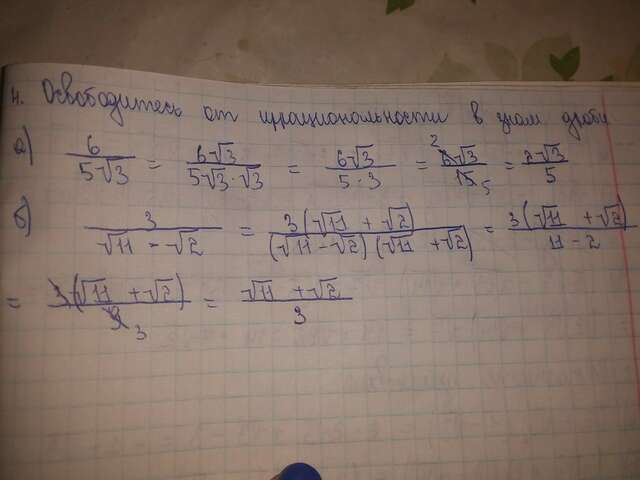 4. Освободитесь от иррациональности в знам дроби
а) 6/(5√3) = 6√3/(5√3·√3) = 6√3/(5·3) = 6√3/15 2 5 = 2√3/5
б) 3/(√11 - √2) = 3(√11 + √2)/((√11 - √2)(√11 + √2)) = 3(√11 + √2)/(11 - 2)
= 3(√11 + √2)/9 3 = (√11 + √2)/3